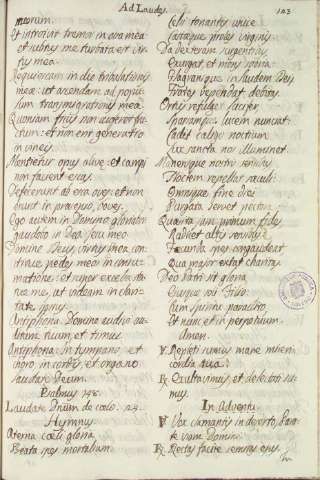 Ad Laudes.
123
meorum.
Et introivit tremor in ossa mea
et subtus me turbata est vir-
tus mea.
Requiescam in die tribulationis
mea: ut ascendam ad popu-
lum transmigrationis mea.
Quoniam fruges non auferet fa-
ctum: et non erit generatio
in vineis.
Mentietur opus olive: et campi
non ferent escas.
Deferentur ab era oves: et non
erunt in praesepio, boves.
Ego autem in Domino gloriabor:
gaudebo in Deo Jesu meo.
Domine Deus, virtus mea, con-
titue pedes meos in consu-
matione: et super excelsa sta-
tue me, ut videam in clari-
tate ipsius.
Antiphona. Domine audivi au-
ditum tuum, et timui.
Antiphona. In tympano, et
choro in cordis, et organo
laudate Deum.
Psalmus 148.
Laudate Dnum de caelis.
Hymnus
Aeterna caeli gloria,
Beata spes mortalium.
Celsi tonantis unice
Castaque proles virginis.
Da dexteram surgentibus
Exurgat et mens sobria
Flagransque in laudem Dei,
Grates rependat debitas.
Ortus refulget lucifer,
Sparsamque lucem nunciat:
Cadit caligo noctium
Lux sancta nos illuminet.
Manensque nostris sensibus
Noctem repellat saeculi:
Omnique fine diei
Purgata servet pectora.
Quaesita jam primum fides
Radicet altis sensibus:
Secunda spes congaudeat,
Qua major extat charitas.
Deo Patri sit gloria
Ejusque soli Filio
Cum spiritu paraclito
Et nunc et in perpetuum.
Amen.
V. Repleti sumus mane miseri-
cordia tua.
R. Exultavimus, et delectati su-
mus.
In Adventu
V. Vox clamantis in deserto, Para-
te viam Domini.
R. Rectas facite semitas ejus.